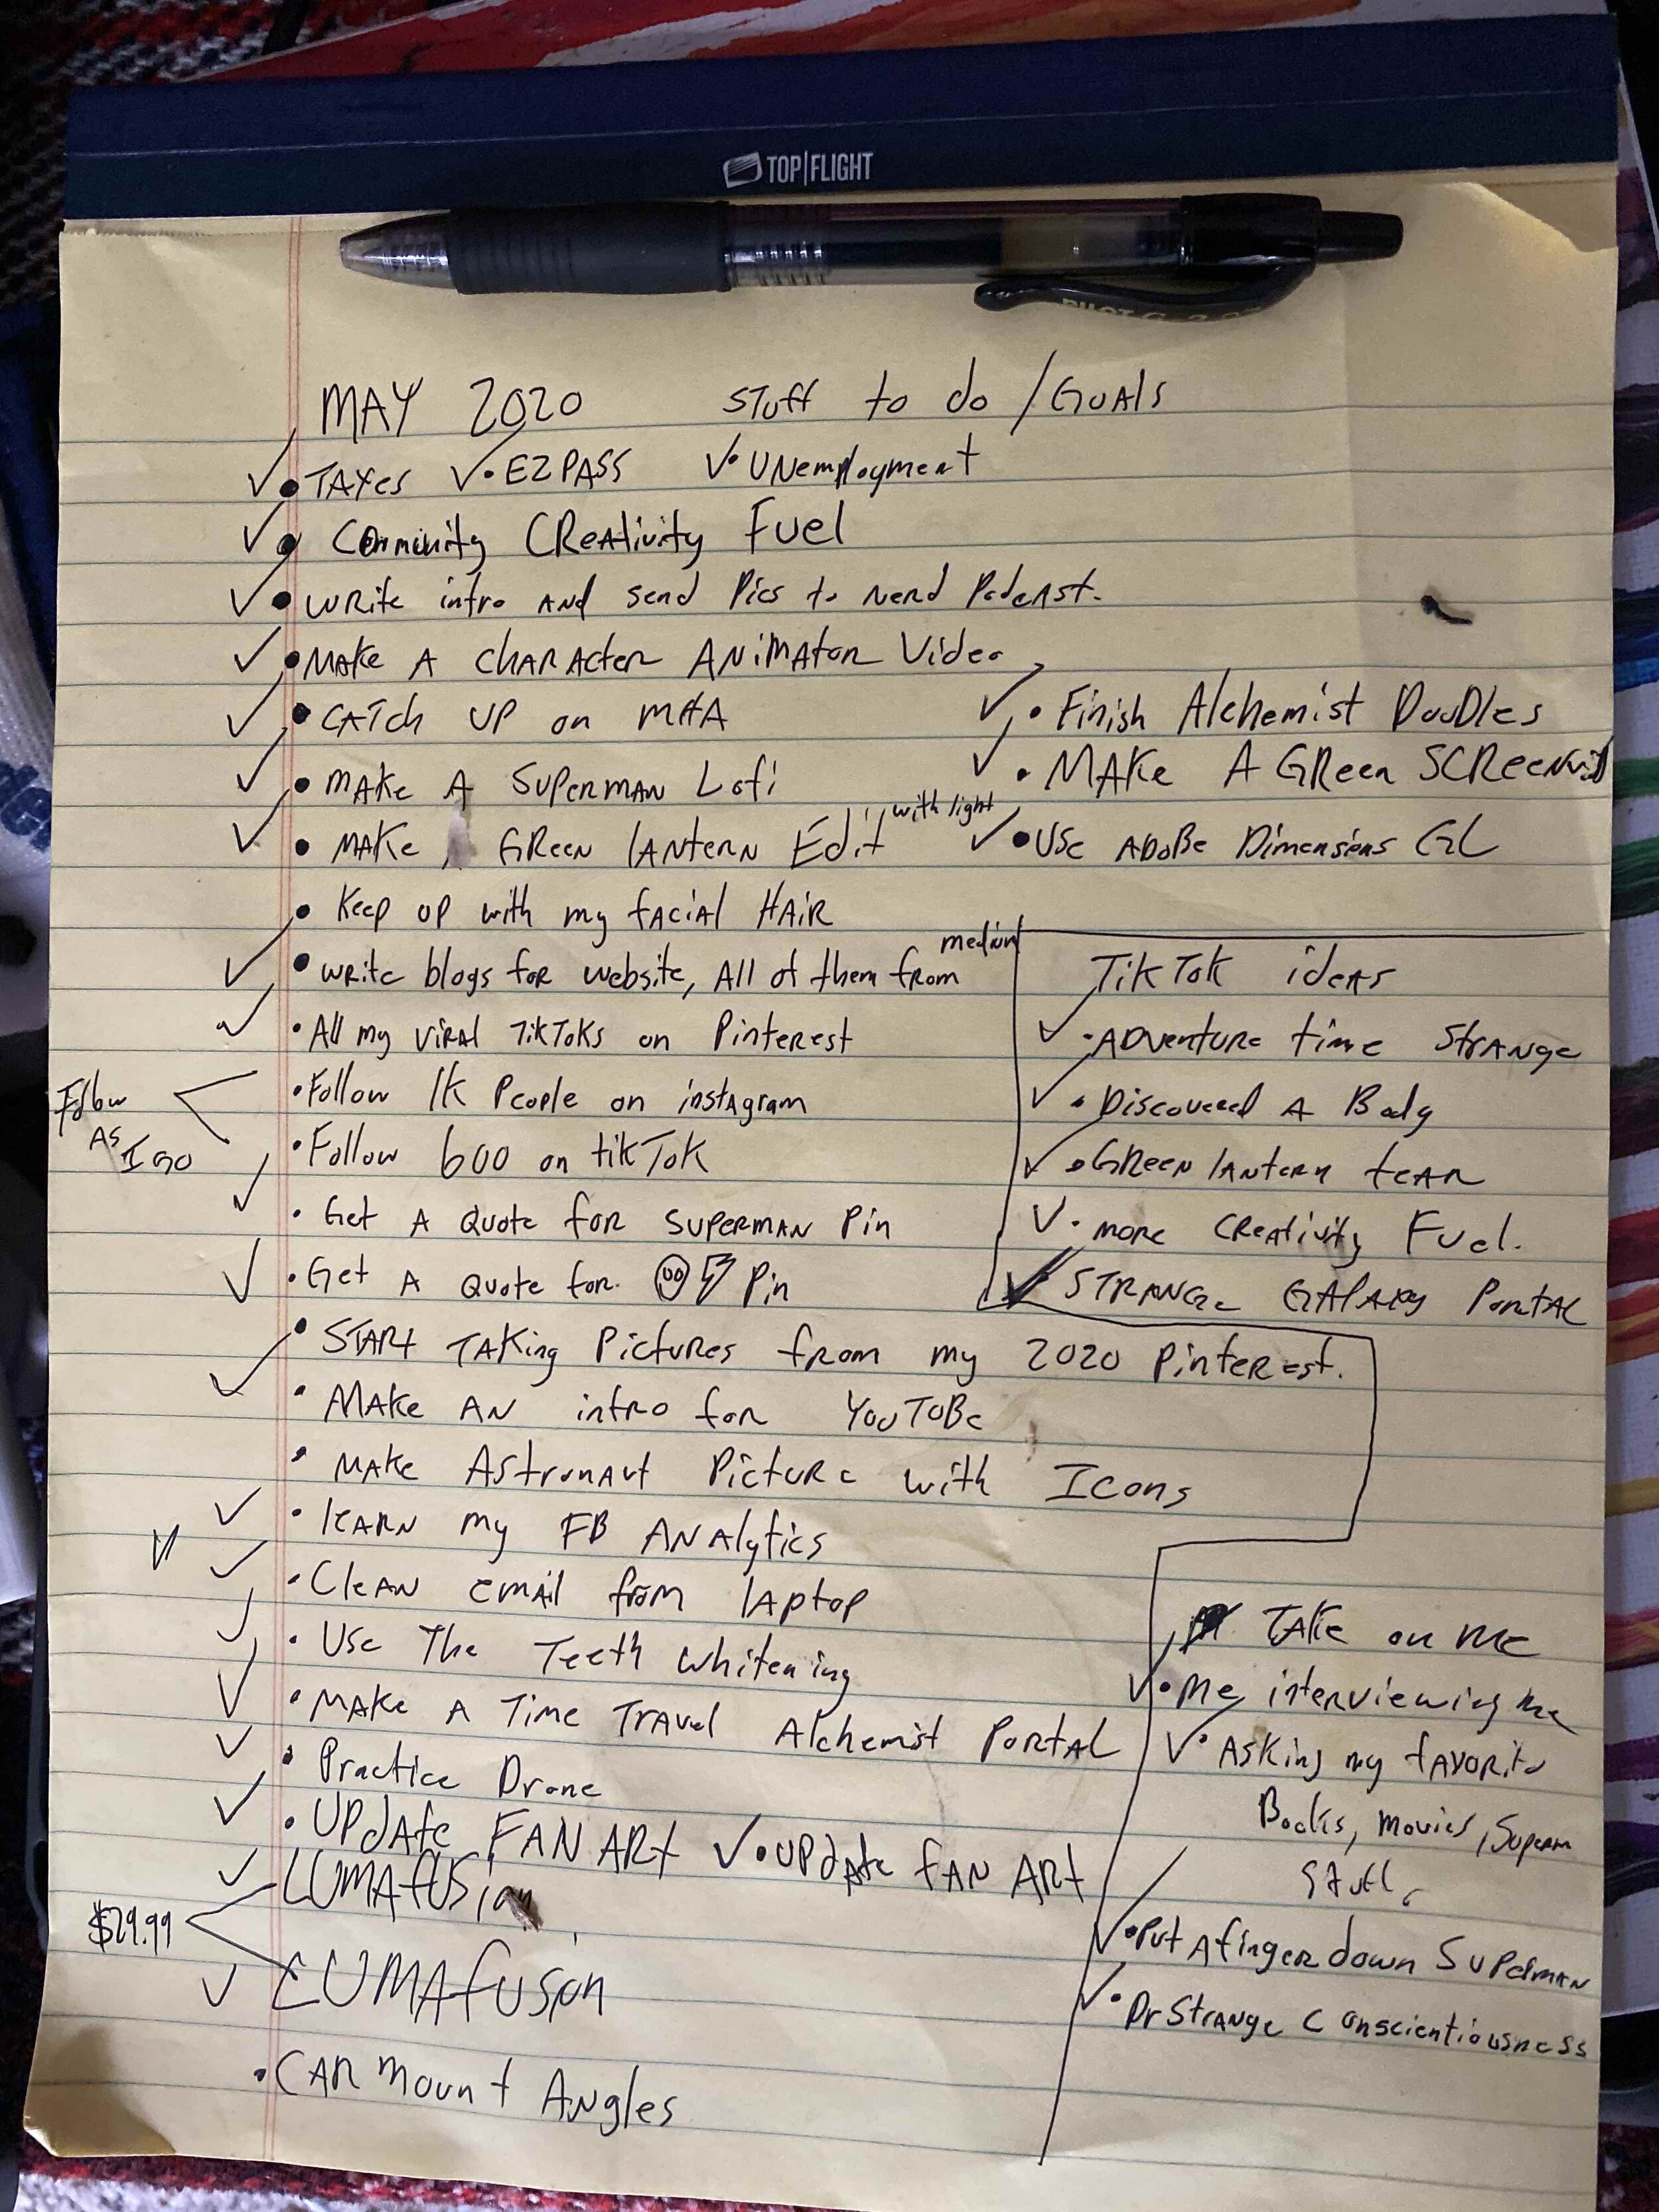 TOP|FLIGHT
MAY 2020 STUFF to do / GOALS
✓• TAXES ✓• EZPASS ✓• UNemployment
✓• Community CReAtivity Fuel
✓• WRite intro AND send Pics to Nerd PodcAst.
✓• MAke A chARActer ANiMAtor Video
✓• CATch UP on MHA
✓• Finish Alchemist DooDles
✓• MAKe A Superman Lofi
✓• MAKe A GReen SCReen vid
✓• MAKe A GReen lANtern Edit with light
✓• USe ADoBe Dimensions GL
• Keep up with my fACiAl HAiR
✓• WRitc blogs foR website, All of them from medium
✓• All my viRAl TikToKs on Pinterest
Follow As I Go
• Follow 1K People on instAgram
• Follow 600 on tikTok
✓• Get A Quote for SUPERMAN Pin
✓• Get A Quote for Pin
• START TAKing PictuRes from my 2020 PinteRest.
✓• MAKe AN intro for YouTOBe
• MAKe AstronAut PictuRe with Icons
✓• leARN my FB ANAlytics
✓• CleAN emAil from lAptop
✓• Use The Teeth Whitening
✓• MAKe A Time TRAvel Alchemist PortAL
✓• Practice Drone
✓• UPdAte FAN ARt ✓• UPdAte fAN ARt
✓ LUMAfUSion
$29.99
✓ LUMAfusion
• CAR Mount Angles
TikTok ideAs
✓• ADventure time StrANge
✓• Discovered A Body
✓• GReen lANtern teAR
✓• more CReAtivity Fuel.
✓ STRANGe GAlAxy PortAL
TAKe on Me
✓• Me interviewing me
✓• ASKing my fAvorite
Books, movies, Superm
Stuff
✓• Put A finger down SUPerMAN
✓• Dr StrANge Conscientiousness